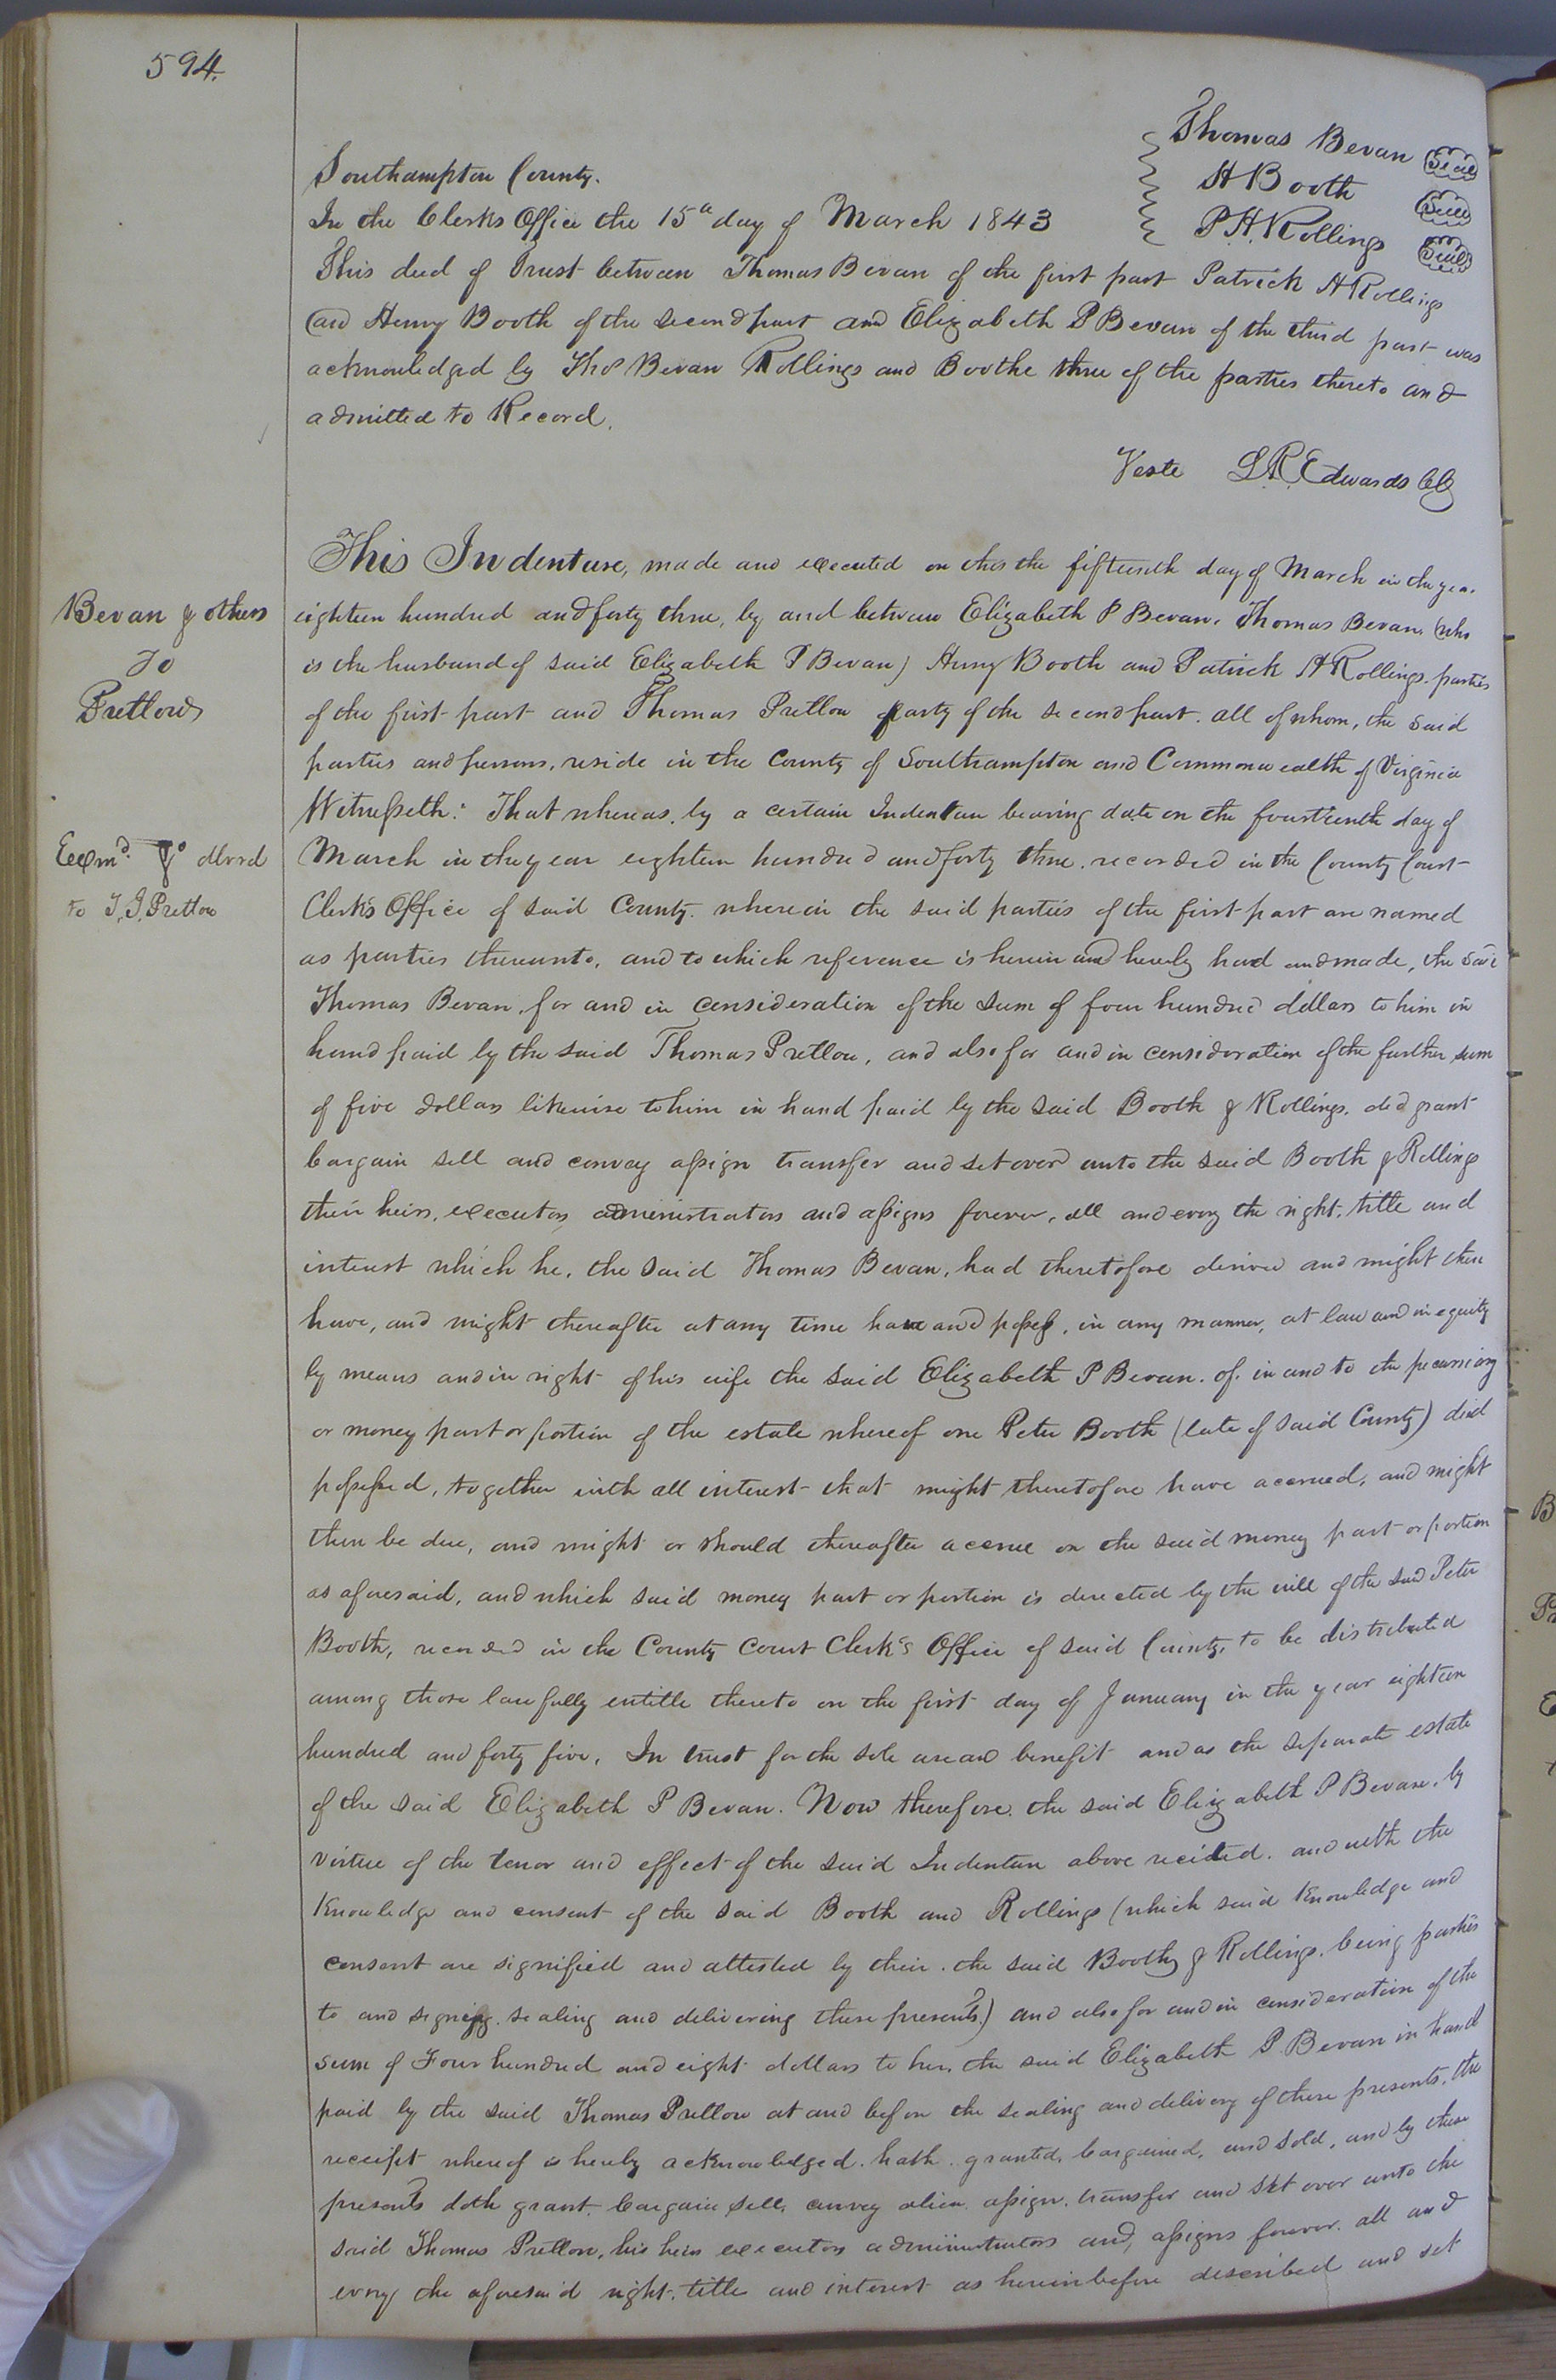 594.
Thomas Bevan Seal
Southampton County. H Booth Seal
In the Clerks Office the 15a day of March 1843 P. H. Rollings Seal
This deed of Trust between Thomas Bevan of the first part Patrick H Rollings
and Henry Booth of the second part and Elizabeth P Bevan of the third part was
acknowledged by Thos Bevan Rollings and Boothe three of the parties thereto and
admitted to Record.
Teste L. R. Edwards Clk
This Indenture, made and executed on this the fifteenth day of March in the year
Bevan & others
To
Pretlow
eighteen hundred and forty three, by and between Elizabeth P Bevan, Thomas Bevan (who
is the husband of said Elizabeth P Bevan) Henry Booth and Patrick H Rollings. parties
of the first part and Thomas Pretlow party of the second part. all of whom, the said
parties and persons, reside in the County of Southampton and Commonwealth of Virginia
Witnesseth: That whereas. by a certain Indenture bearing date on the fourteenth day of
Exmd. & dlvrd
to T. J. Pretlow
March in the year eighteen hundred and forty three. recorded in the County Court
Clerk's Office of said County. wherein the said parties of the first part are named
as parties thereunto, and to which reference is herein and hereby had and made, the said
Thomas Bevan, for and in consideration of the sum of four hundred dollars to him in
hand paid by the said Thomas Pretlow, and also for and in consideration of the further sum
of five dollars likewise to him in hand paid by the said Booth & Rollings. did grant
bargain sell and convey assign transfer and set over unto the said Booth & Rollings
their heirs, executors, administrators and assigns forever, all and every the right, title and
interest which he, the said Thomas Bevan, had theretofore derived and might then
have, and might thereafter at any time have and possess, in any manner, at law and in equity
by means and in right of his wife the said Elizabeth P Bevan. of. in and to the pecuniary
or money part or portion of the estate whereof one Peter Booth (late of said County) died
possessed, together with all interest that might theretofore have accrued, and might
then be due, and might or should thereafter accrue on the said money part or portion
as aforesaid, and which said money part or portion is directed by the will of the said Peter
Booth, recorded in the County Court Clerk's Office of said County, to be distributed
among those lawfully entitle thereto on the first day of January in the year eighteen
hundred and forty five, In trust for the sole use and benefit and as the separate estate
of the said Elizabeth P Bevan. Now therefore. the said Elizabeth P Bevan. by
virtue of the tenor and effect of the said Indenture above recited. and with the
Knowledge and consent of the said Booth and Rollings (which said Knowledge and
consent are signified and attested by their. the said Booth & Rollings. being parties
to and signing. sealing and delivering these presents.) and also for and in consideration of the
sum of Four hundred and eight dollars to her, the said Elizabeth P. Bevan in hand
paid by the said Thomas Pretlow at and before the sealing and delivery of these presents. the
receipt whereof is hereby acknowledged. hath. granted, bargained, and sold, and by these
presents doth grant. bargain, sell, convey alien. assign. transfer and set over unto the
said Thomas Pretlow, his heirs executors administrators and, assigns forever. all and
every the aforesaid right. title and interest as hereinbefore described and set